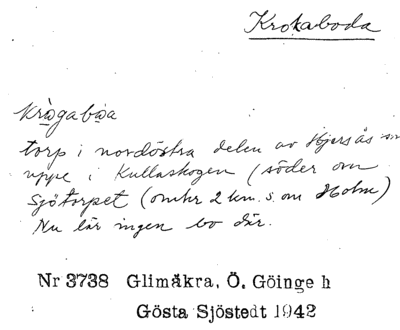 Krokaboda
krågabåa
torp i nordöstra delen av Hjersås sn
uppe i Kullaskogen (söder om
Sjötorpet (omkr 2 km. s. om Holm)
Nu lär ingen bo där.
Nr 3738 Glimåkra, Ö. Göinge h
Gösta Sjöstedt 1942